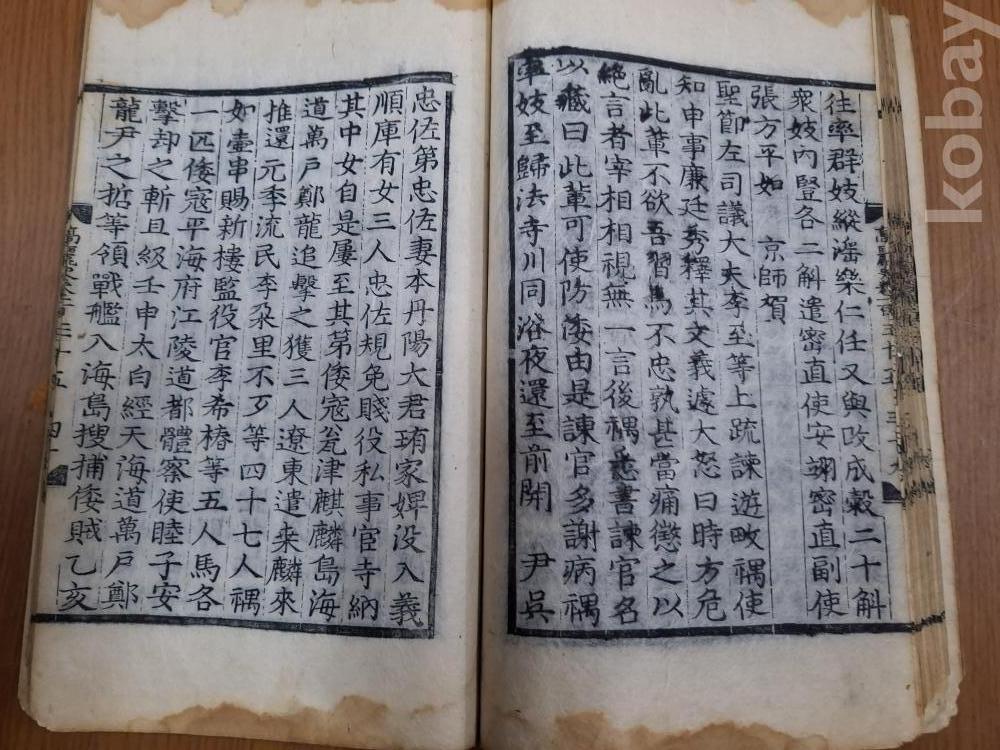 往率群妓縱滛樂仁任又與改成穀二十斛
衆妓內豎各二斛遣密直使安翊密直副使
張方平如 京師賀
聖節左司議大夫李至等上疏諫遊畋禑使
知申事廉廷秀釋其文義遽大怒曰時方危
亂此軰不欲吾習馬不忠孰甚當痛懲之以
絶言者宰相相視無一言後禑悉書諫官名
以藏曰此軰可使防倭由是諫官多謝病禑
率妓至歸法寺川同浴夜還至前開 尹吳
忠佐第忠佐妻本丹陽大君珛家婢没入義
順庫有女三人忠佐規免賤役私事宦寺納
其中女自是屢至其第倭寇瓮津麒麟島海
道萬户鄭龍追擊之獲三人遼東遣来麟來
推還元季流民李朶里不歹等四十七人禑
如壷串賜新樓監役官李希椿等五人馬各
一匹倭寇平海府江陵道都體察使睦子安
擊却之斬且級壬申太白經天海道萬户鄭
龍尹之哲等領戰艦入海島搜捕倭賊乙亥
高麗史卷一百三十五 四十
kobay